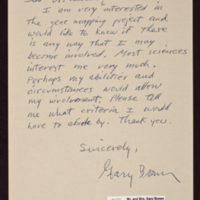 I am very interested in
the gene mapping project and
would like to know if there
is any way that I may
become involved. Most sciences
interest me very much.
Perhaps my abilities and
circumstances would allow
my involvement. Please tell
me what criteria I would
have to abide by. Thank you.
Sincerely,
Gary Bowen
Mr. and Mrs. Gary Bowen